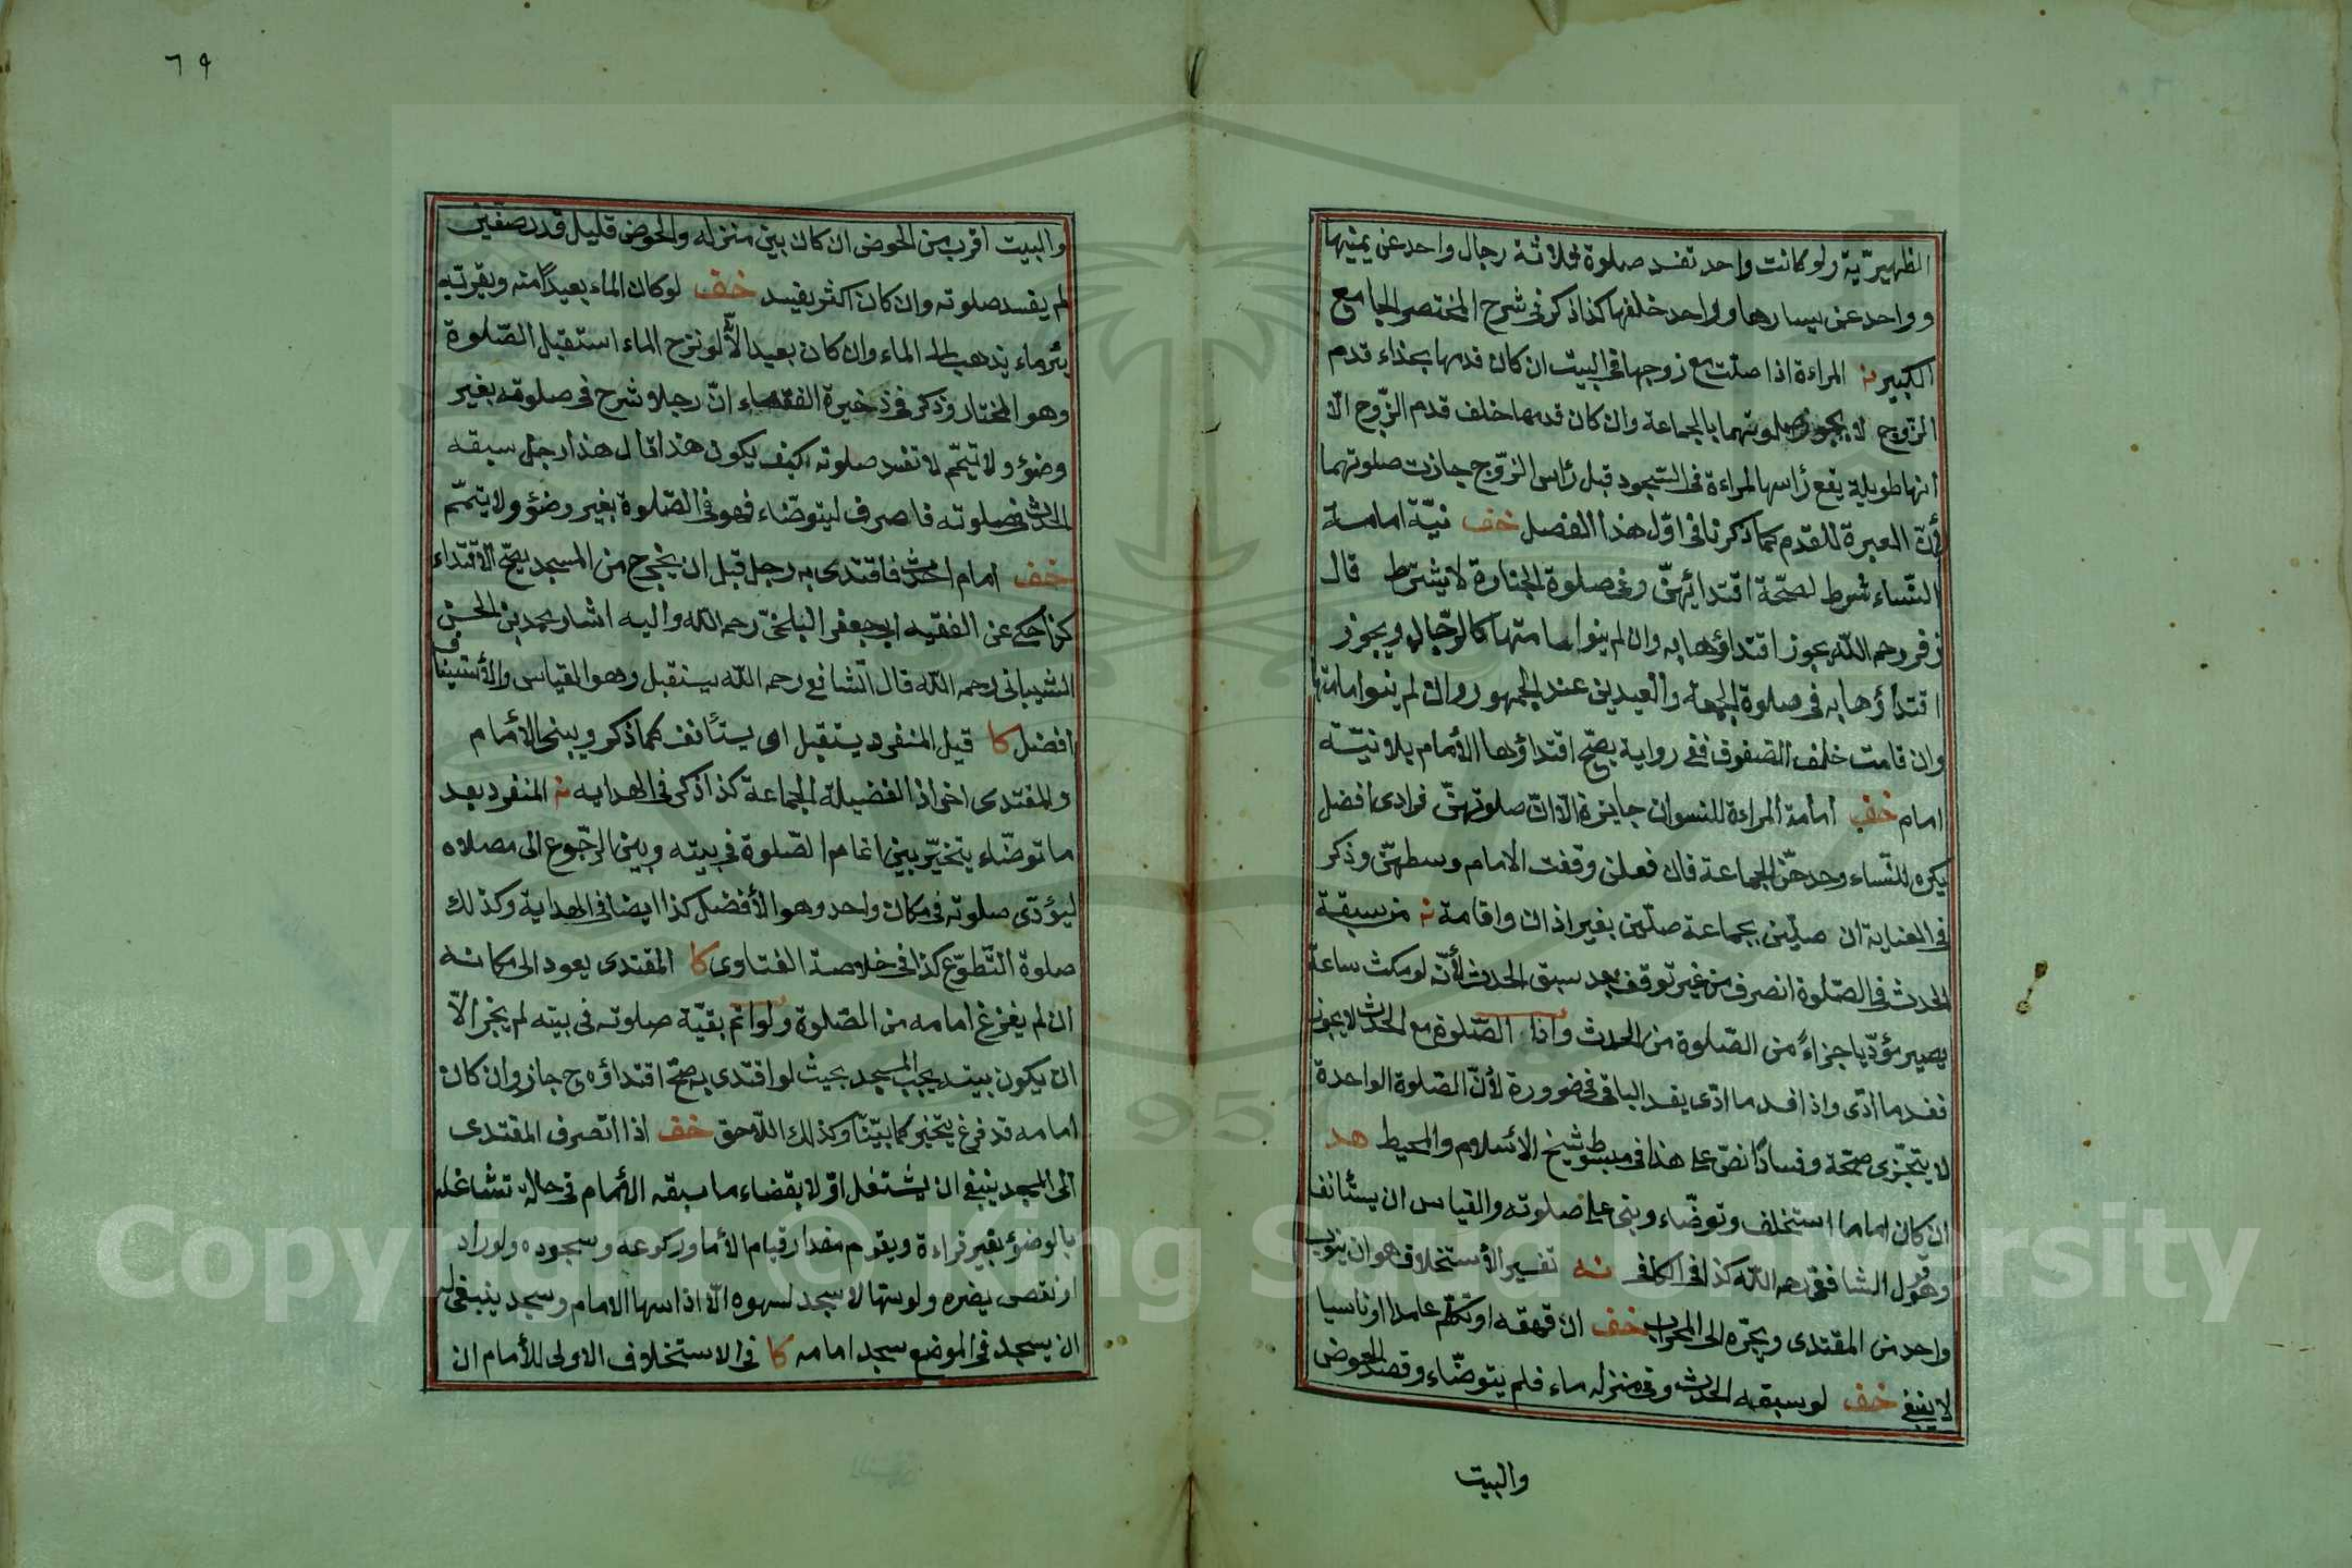 الظهيرية ولو كانت واحد تفسد صلوة ثلاثة رجال واحد عن يمينها
وواحد عن يسارها وواحد خلفها كذا ذكر في شرح المختصر الجامع
الكبير نه المراءة اذا صلت مع زوجها في البيت ان كان قدمها بحذاء قدم
الزوج لا يجوز صلوتهما بالجماعة وان كان قدمها خلف قدم الزوج الا
انها طويلة يقع رأسها المراءة في السجود قبل رأس الزوج جازت صلوتهما
لأن العبرة للقدم كما ذكرنا في اول هذا الفصل خف نية امامسة
النساء شرط لصحة اقتدائهن وفي صلوة الجنازة لا يشترط قال
زفر رحمه الله يجوز اقتداؤها به وان لم ينوا امامتها كالرجال ويجوز
اقتداؤها به في صلوة الجمعة والعيدين عند الجمهور وان لم ينوا امامتها
وان قامت خلف الصفوف ففي رواية يصح اقتداؤها الأمام بلا نية
امام خف امامة المراءة للنسوان جايزة الا ان صلوتهن فرادى افضل
يكره للنساء وحدهن الجماعة فان فعلن وقفت الامام وسطهن وذكر
في العناية ان صلين بجماعة صلين بغير اذان واقامة نه من سبقة
الحدث في الصلوة انصرف من غير توقف بعد سبق الحدث لأنه لو مكث ساعة
يصير مؤديا جزاءً من الصلوة من الحدث واذا الصلوة مع الحدث لا يجوز
ففسد ما ادى واذا فسد ما ادى يفسد الباقي في ضرورة لأن الصلوة الواحدة
لا يتجزى صحة وفسادًا نص على هذا في مبسوط شيخ الأسلام والمحيط هد
ان كان اماما استخلف وتوضاء وبنى على صلوته والقياس ان يستأنف
وهو قول الشافعي رحمه الله كذا في الكافي نه تفسير الأستخلاف هو ان ينوب
واحد من المقتدى ويجره الى المحراب خف ان قهقه او تكلم عامدا او ناسيا
لا يبنى خف لو سبقه الحدث وفي منزله ماء فلم يتوضاء وقصد الحوض
والبيت
٦٩
والبيت اقرب من الحوض ان كان بين منزله والحوض قليل قدر صفين
لم يفسد صلوته وان كان اكثر يفسد خف لو كان الماء بعيدًا منه وبقربه
بئر ماء يذهب الى الماء وان كان بعيد الأنه لو نزح الماء استقبل الصلوة
وهو المختار وذكر في ذخيرة الفقهاء ان رجلا شرح في صلوته بغير
وضؤ ولا تيمم لا تفسد صلوته كيف يكون هذا قال هذا رجل سبقه
الحدث في صلوته فاصرف ليتوضاء فهو في الصلوة بغير وضؤ ولا يتمم
خف امام احدث فاقتدى به رجل قبل ان يخرج من المسجد يصح الاقتداء
كذا حكى عن الفقيه ابي جعفر البلخي رحمه الله واليه اشار محمد بن الحسن
الشيباني رحمه الله قال الشافعي رحمه الله يستقبل وهو القياس والأستيناف
افضل كا قيل المنفرد يستقبل اى يستأنف كما ذكر ويبنى الأمام
والمقتدى احرازا لفضيلة الجماعة كذا ذكر في الهدايه نه المنفرد بعد
ما توضاء يتخير بين اتمام الصلوة في بيته وبين الرجوع الى مصلاه
ليؤدى صلوته في مكان واحد وهو الأفضل كذا ايضا في الهداية وكذلك
صلوة التطوع كذا في خلاصة الفتاوى كا المقتدى يعود الى مكانه
ان لم يفرغ امامه من الصلوة ولو اتم بقية صلوته في بيته لم يجز الا
ان يكون بيته بجنب المسجد بحيث لو اقتدى به صح اقتداؤه ح جاز وان كان
امامه قد فرغ يتخير كما بينا وكذلك اللاحق خف اذا انصرف المقتدى
الى المسجد ينبغي ان يشتغل اولا بقضاء ما سبقه الأمام في حالة تشاغله
بالوضؤ بغير قراءة ويقوم مقدار قيام الأمام وركوعه وسجوده ولو زاد
او نقص يضره ولو سها لا سجد لسهوه الا اذا سها الامام وسجد ينبغي له
ان يسجد في الموضع سجد امامه كا في الاستخلاف الاولى للأمام ان
Copyright © King Saud University